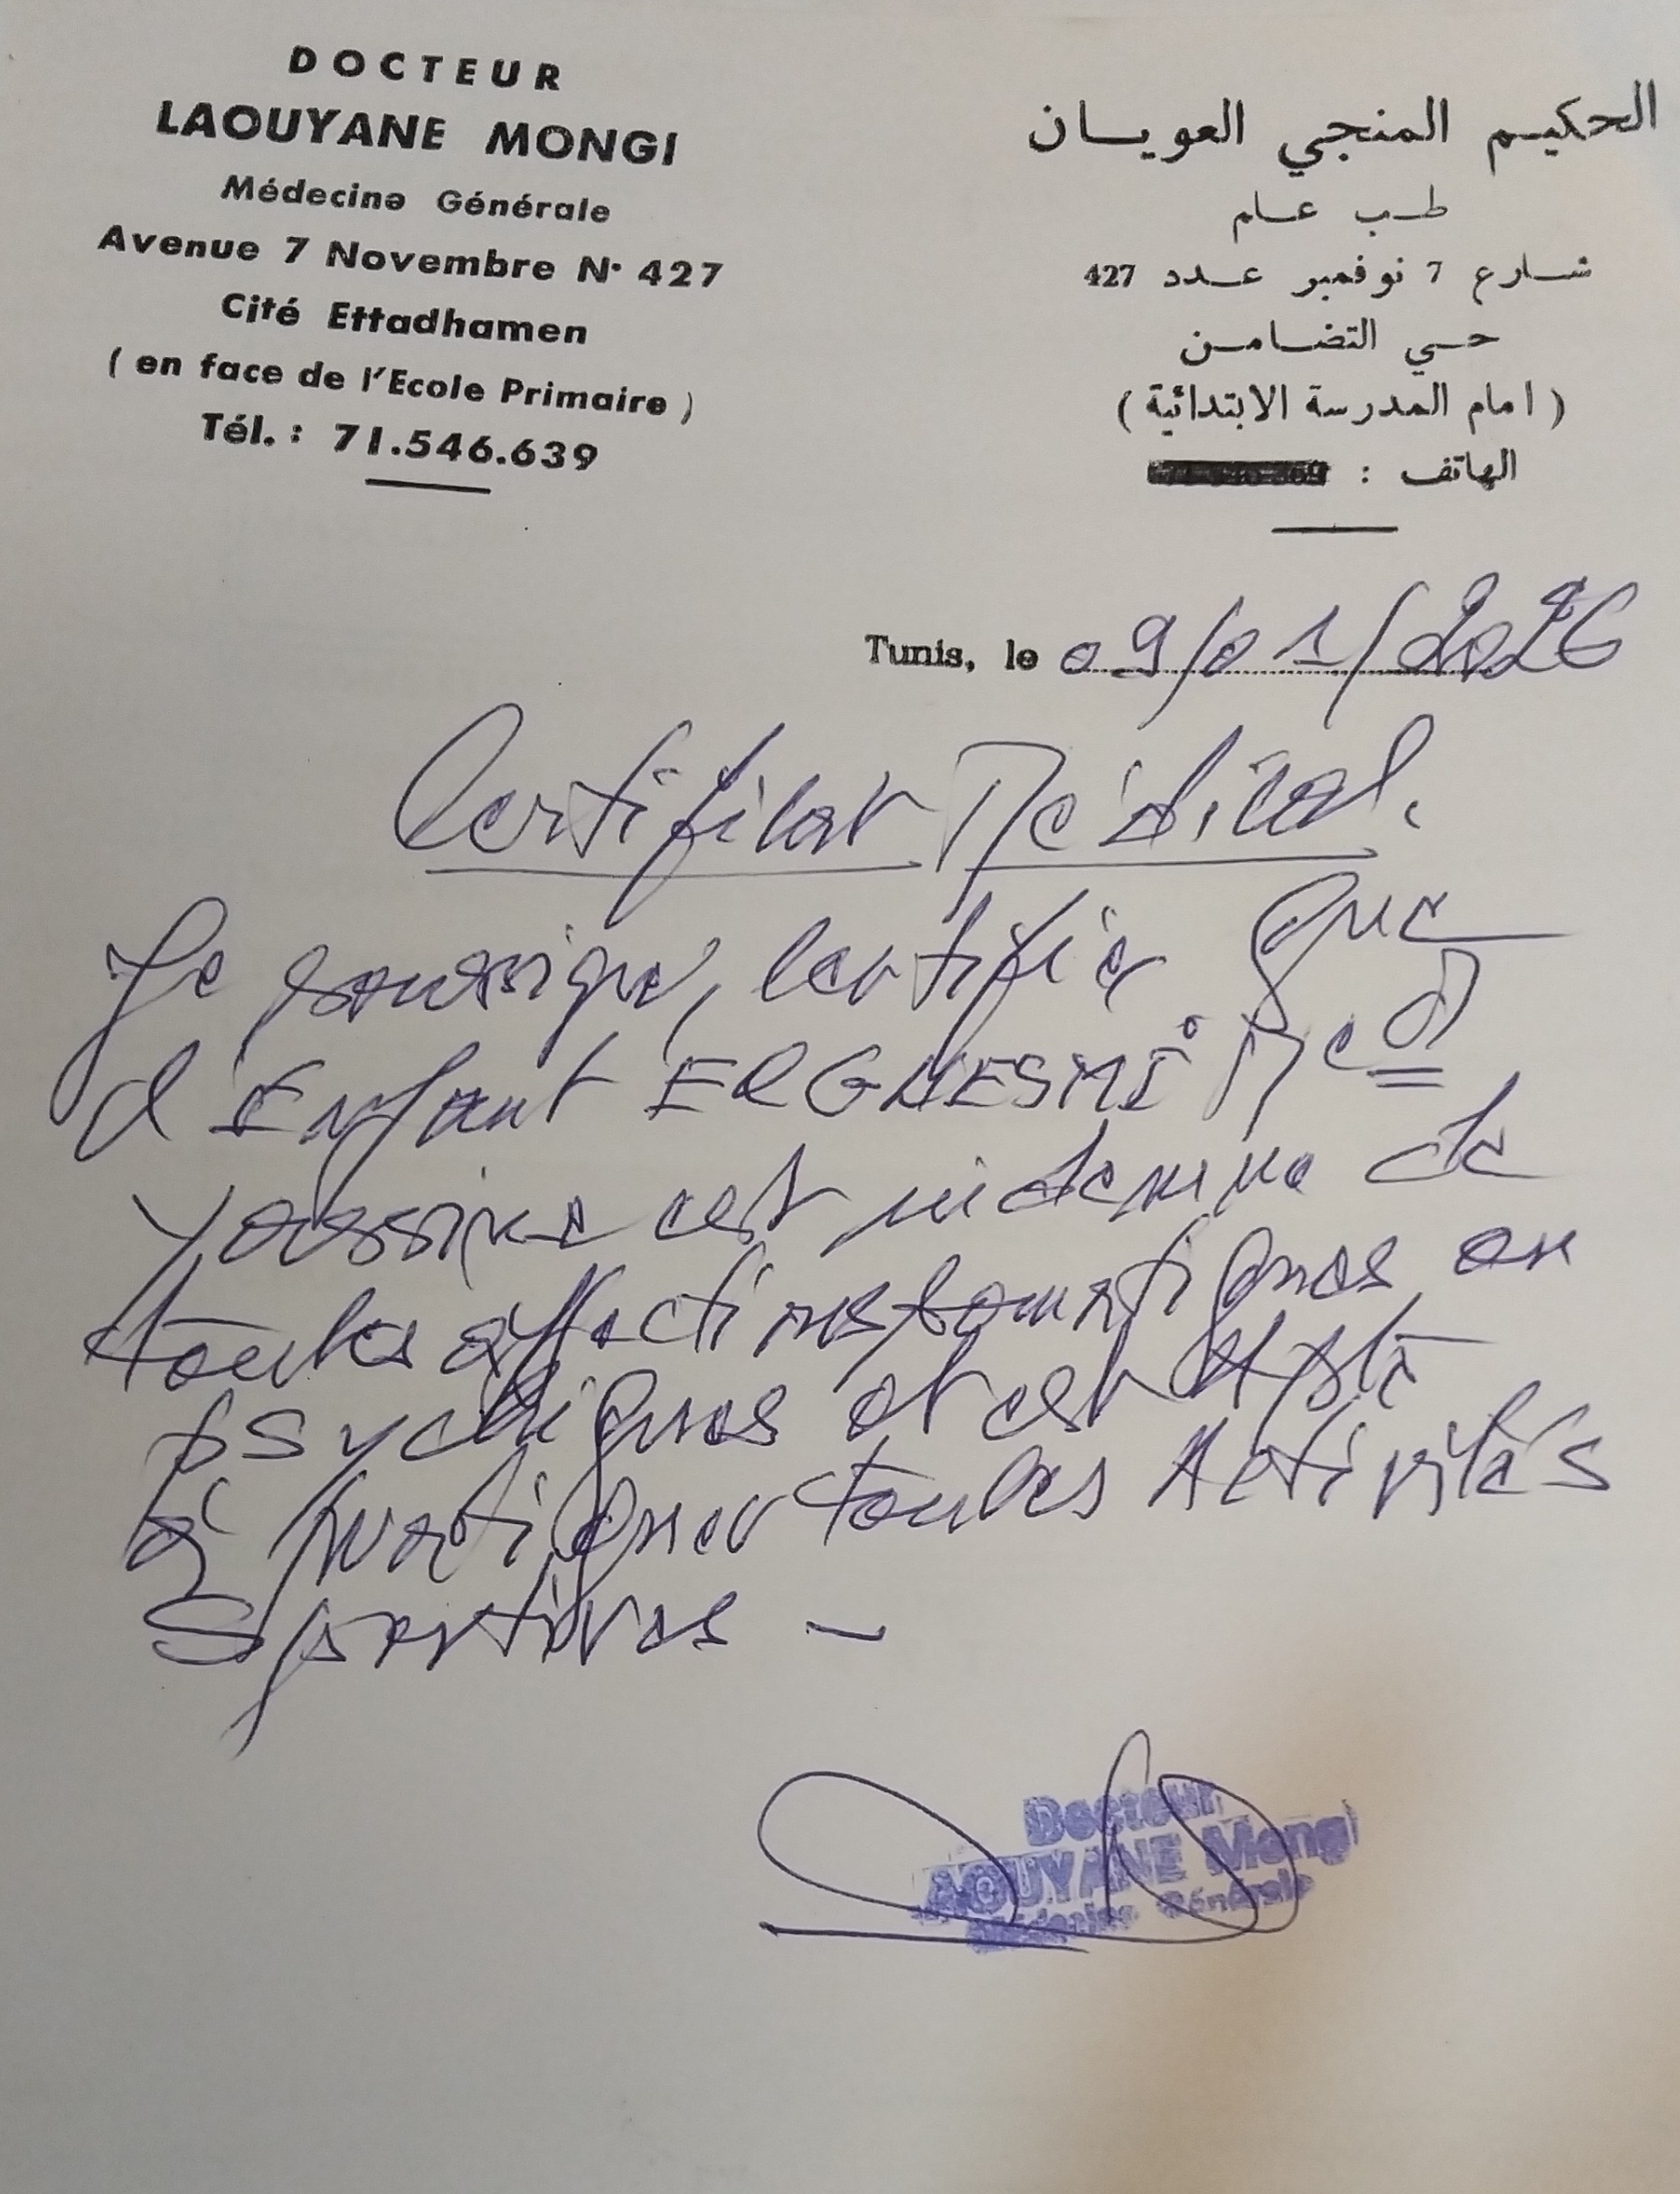 DOCTEUR
LAOUYANE MONGI
Médecine Générale
Avenue 7 Novembre N° 427
Cité Ettadhamen
( en face de l'Ecole Primaire )
Tél. : 71.546.639
الحكيم المنجي العويان
طب عام
شارع 7 نوفمبر عدد 427
حي التضامن
( امام المدرسة الابتدائية )
الهاتف :
Tunis, le 09/01/2026
Certificat Médical.
Je soussigné, certifie que
l'Enfant ERGHESMI Med
Yassine est indemne de
toutes affections somatiques ou
psychiques et est Apte
à pratiquer toutes Activités
Sportives -
Docteur
LAOUYANE Mongi
Médecine Générale